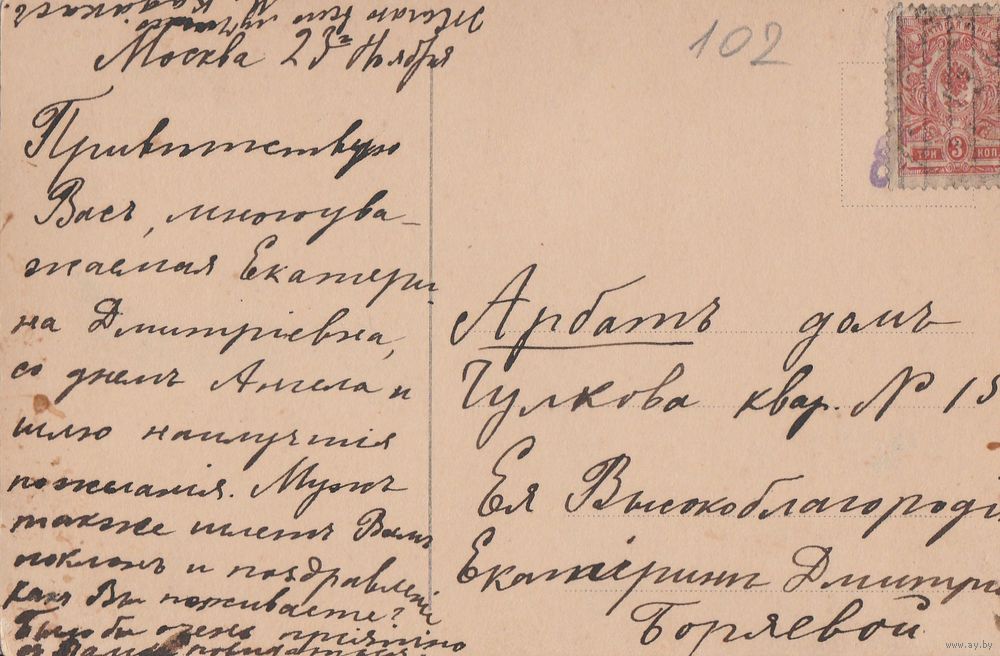 102
Москва 23 Ноября
Привѣтствую
Васъ, многоува-
жаемая Екатери-
на Дмитріевна,
со днемъ Ангела и
шлю наилучшія
пожеланія. Мужъ
также шлетъ Вамъ
поклонъ и поздравленія
какъ Вы поживаете?
Было бы очень пріятно
съ Вами
Желаю всего
ТРИ 3 КОП
Арбатъ домъ
Чулкова квар. № 15
Ея Высокоблагороді
Екатеринѣ Дмитрі
Боряевой
www.ay.by